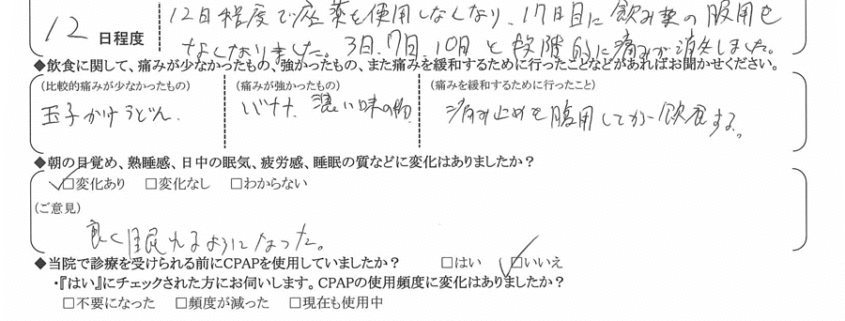 12日程度で座薬を使用しなくなり、17日目に飲み薬の服用も
12 日程度
なくなりました。3日、7日、10日と段階的に痛みが消失しました。
◆飲食に関して、痛みが少なかったもの、強かったもの、また痛みを緩和するために行ったことなどがあればお聞かせください。
(比較的痛みが少なかったもの) (痛みが強かったもの) (痛みを緩和するために行ったこと)
玉子かけうどん. バナナ、濃い味の物. 痛み止めを服用してから飲食する。
◆朝の目覚め、熟睡感、日中の眠気、疲労感、睡眠の質などに変化はありましたか?
☑変化あり □変化なし □わからない
(ご意見)
良く眠れるようになった。
◆当院で診療を受けられる前にCPAPを使用していましたか? □はい ☑いいえ
・『はい』にチェックされた方にお伺いします。CPAPの使用頻度に変化はありましたか?
□不要になった □頻度が減った □現在も使用中